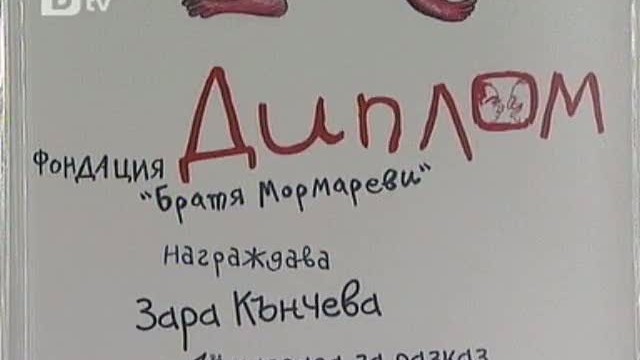 bTV
Диплом
фондация
"Братя Мормареви"
награждава
Зара Кънчева
за разказ